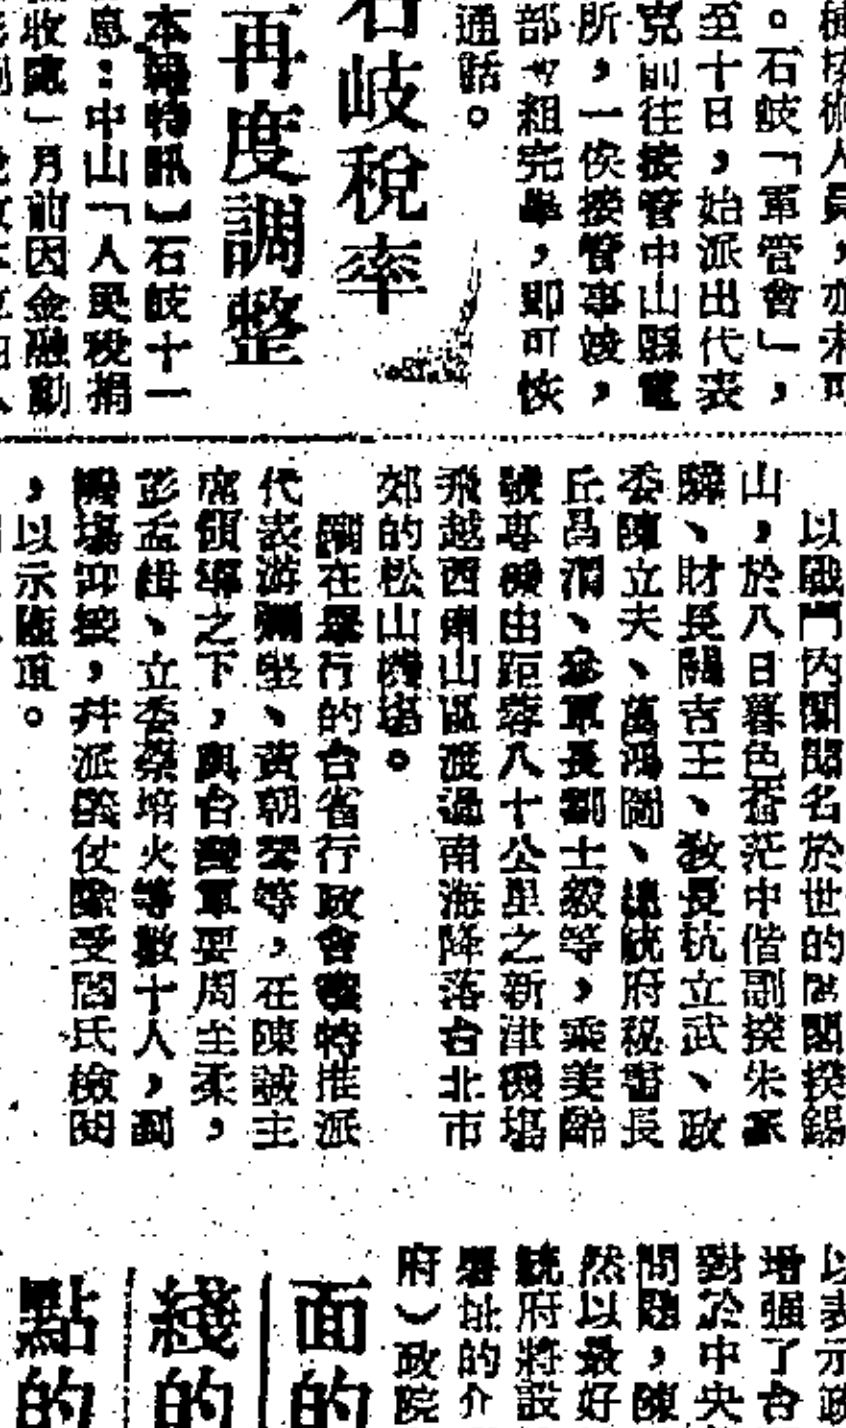 人員，亦未可
。石岐「軍管會」，
至十日，始派出代表
克前往接管中山縣電
所，一俟接管事竣，
部組完畢，即可恢
通話。
石岐稅率
再度調整
本報特訊】石岐十一
息：中山「人民稅捐
收處」月前因金融劇
以戰鬥內閣聞名於世的閻閣揆錫
山，於八日暮色蒼茫中偕副揆朱家
驊、財長關吉玉、教長杭立武、政
委陳立夫、萬鴻圖、總統府秘書長
丘昌渭、參軍長劉士毅等，乘美齡
號專機由距蓉八十公里之新津機場
飛越西南山區渡過南海降落台北市
郊的松山機場。
剛在舉行的台省行政會議特推派
代表游彌堅、黃朝琴等，在陳誠主
席領導之下，與台灣軍要周至柔，
彭孟緝、立委蔡培火等數十人，到
機場迎接，幷派儀仗隊受閻氏檢閱
，以示隆重。
以表示政
增强了台
對於中央
問題，陳
然以最好
統府將設
署址的介
府）政院
面的
綫的
點的